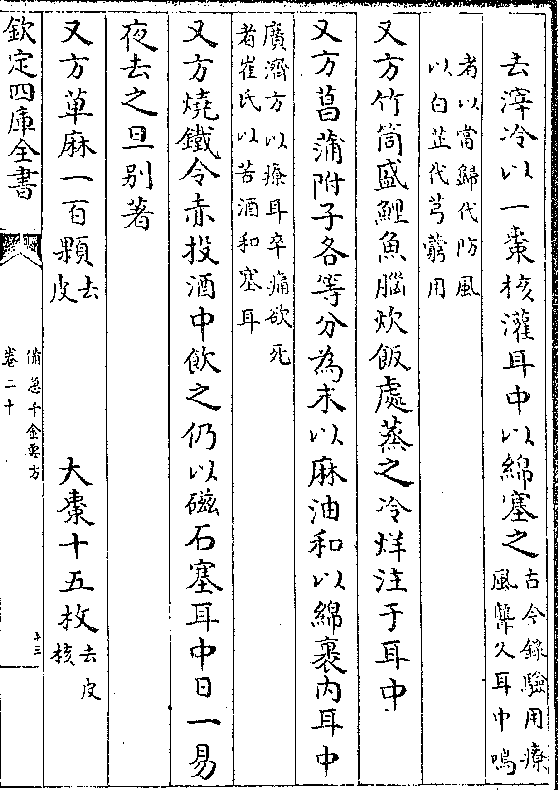 去滓冷以一棗核灌耳中以綿塞之古今錄驗用療
風聾久耳中鳴
者以當歸代防風
以白芷代芎藭用
又方竹筒盛鯉魚腦炊飯處蒸之冷烊注于耳中
又方菖蒲附子各等分為末以麻油和以綿裹内耳中
廣濟方以療耳卒痛欲死
者崔氏以苦酒和塞耳
又方燒鐵令赤投酒中飲之仍以磁石塞耳中日一易
夜去之旦别著
又方萆麻一百顆去
皮
大棗十五枚去皮
核
欽定四庫全書
備急千金要方
卷二十
十三